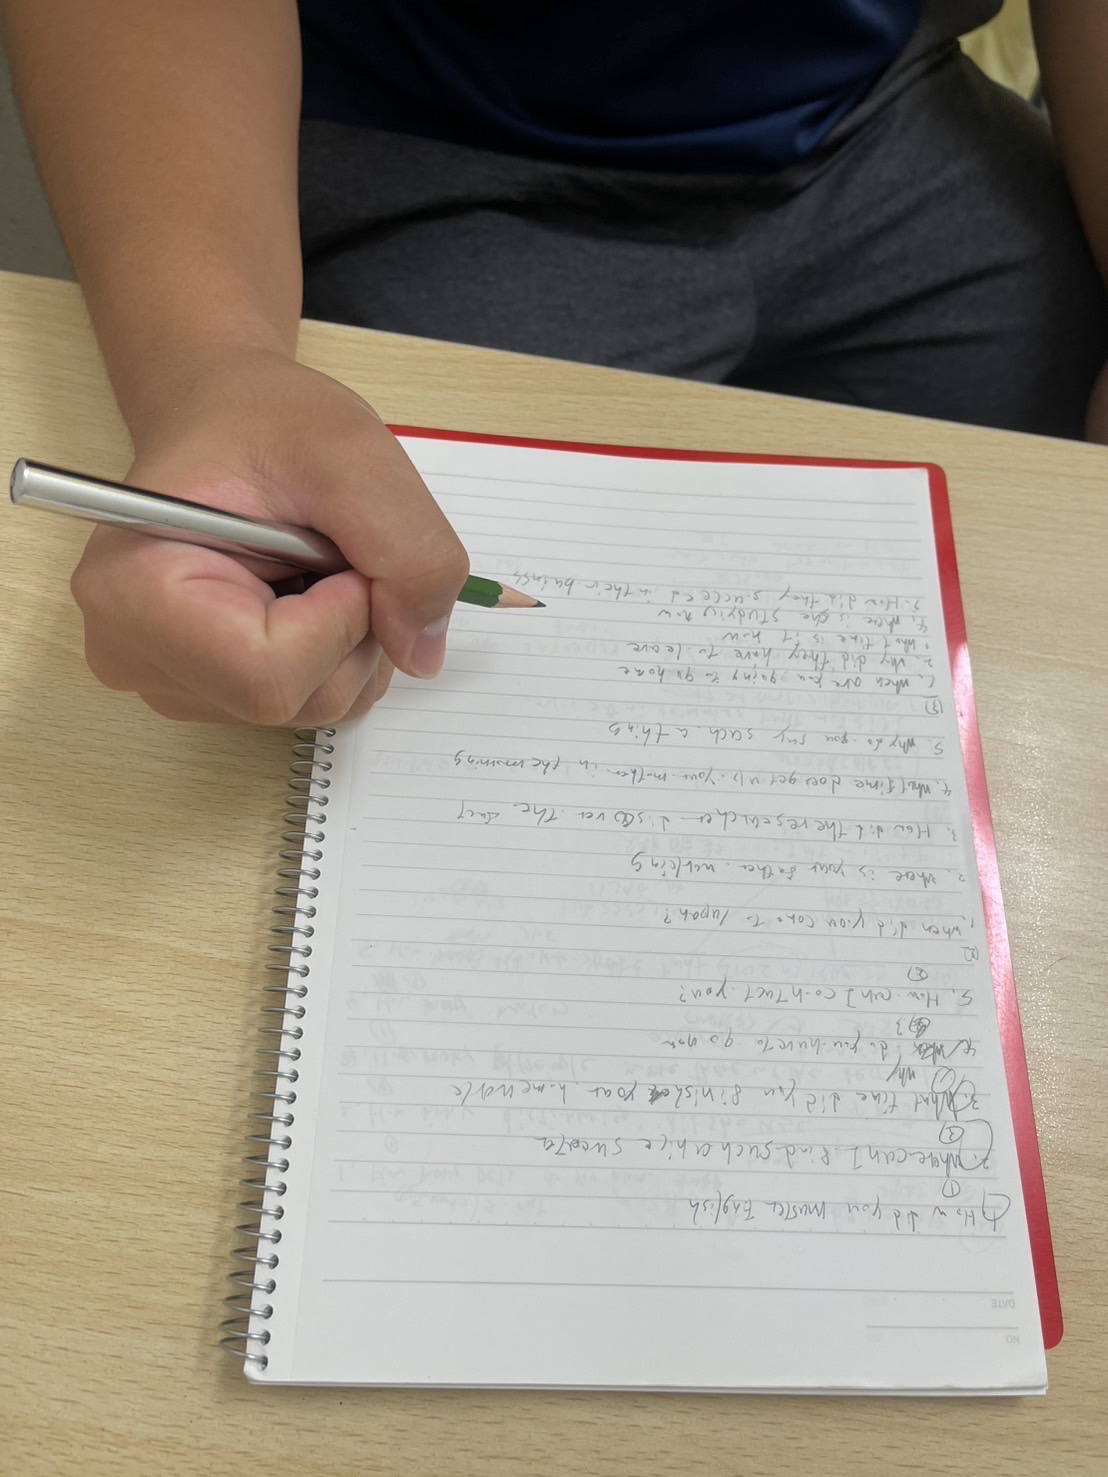 NO
DATE
1, How did you master English
①
2. Where can I find such a nice sweata
②
3. What time did you finish your homework
Why
4. do you have to go now
③
5. How can I contact you?
②
(2)
1, when did you come to Japan?
2. where is your father working
3. How did the researcher discover the fact
4. what time does get up your mother in the morning
5. why do you say such a thing
(3)
1. when are you going to go home
2. why did they have to leave
3. what time is it now
4. where is she studying now
5. How did they succeed in their business